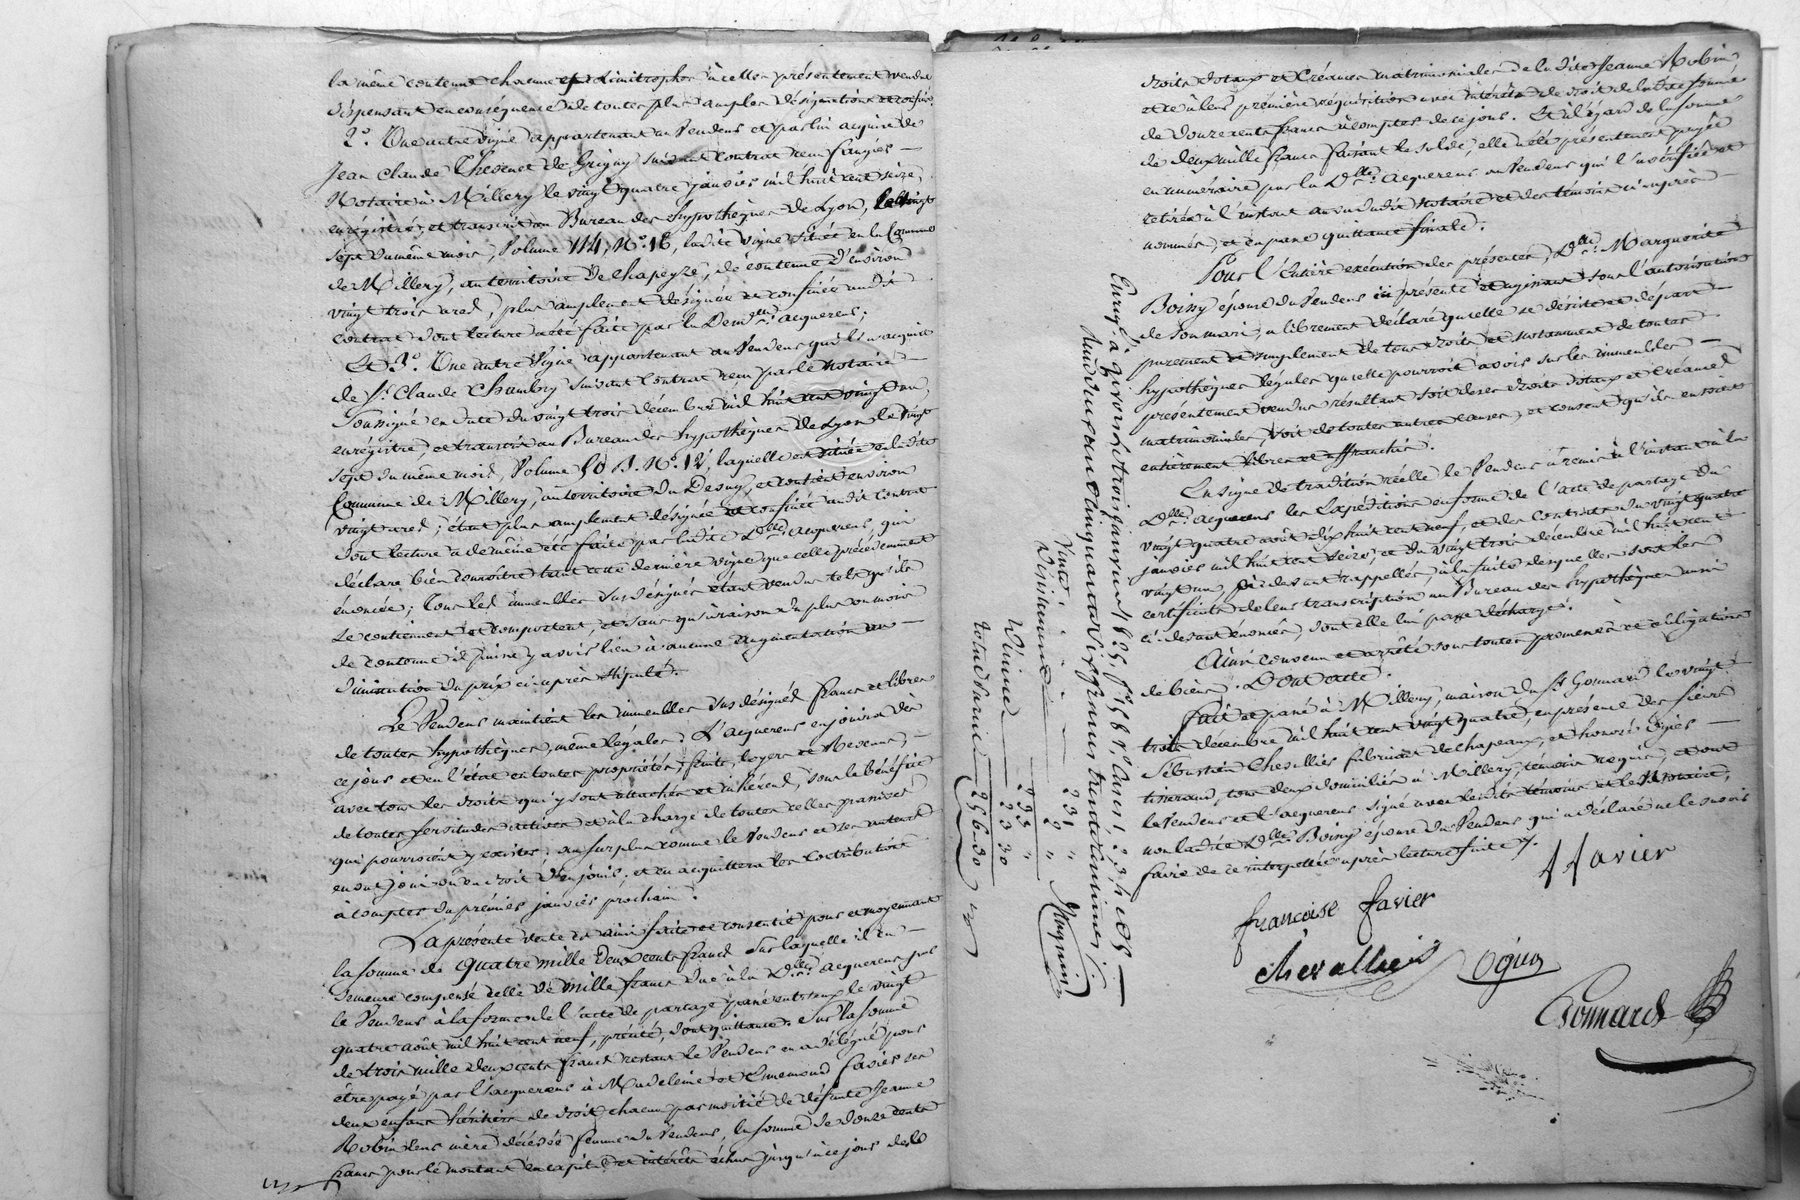 la même contenue chacune et limitrophes à celles présentement vendues
dispensant en conséquence de toutes plus amples désignations et confins;
2.° Une autre vigne appartenant au Vendeur et par lui acquise de
Jean Claude Thevenet de Grigny suivant Contrat reçu fangier
Notaire à Millery le vingt quatre janvier mil huit cent seize,
enrégistré, et transcrit au Bureau des hypothèques de Lyon, le vingt
sept du même mois, Volume 114, N.° 16, ladite vigne située en la Commune
de Millery, au territoire de Chapeyze, de contenue d'environ
vingt trois ares, plus amplement désignée et confinée audit
contrat dont lecture a été faite par la Dem.lle acquereur;
Et 3.° Une autre Vigne appartenant au Vendeur qu'il a acquise
de S.r Claude Chambry suivant Contrat reçu par le notaire
soussigné en date du vingt trois décembre mil huit cent vingt un,
enrégistré, et transcrit au Bureau des hypothèques de Lyon le vingt
sept du même mois, Volume 50 N.° 12, laquelle est située en la dite
Commune de Millery, au territoire du Desny, et contient environ
vingt ares; étant plus amplement désignée et confinée audit Contrat
dont lecture a de même été faite par ladite D.lle acquereur, qui
déclare bien connoître tant cette dernière vigne que celle précédemment
énoncée; Tous les immeubles sus désignés étant vendus tels qu'ils
se contiennent et comportent, et sans qu'à raison du plus ou moins
de contenue il puisse y avoir lieu à aucune augmentation ou
diminution du prix ci-après stipulé.
Le Vendeur maintient les immeubles sus désignés francs et libres
de toutes hypothèques, même légales. L'acquereur en jouira dès
ce jour et en l'état en toutes propriétés, fruits, loyers et Revenus,
avec tous les droits qui y sont attachés et inhérens, sous le bénéfice
de toutes servitudes actives et à la charge de toutes celles passives
qui pourroient y exister; au surplus comme le Vendeur et ses auteurs
en ont joui ou eu droit d'en jouir, et en acquittera les contributions
à compter du premier janvier prochain.
La présente vente est ainsi faite et consentie pour et moyennant
la somme de Quatre mille Deux cents francs sur laquelle il en
demeure compensé celle de mille francs due à la D.lle acquereur par
le Vendeur à la forme de l'acte de partage passé entr'eux le vingt
quatre août mil huit cent neuf, précité, dont quittance. Sur la somme
de trois mille deux cents francs restant le Vendeur en a délégué pour
être payé par l'acquereur à Madeleine et Ennemond Favier ses
deux enfans héritiers de droit chacun par moitié de défunte Jeanne
Robin leur mère décédée femme du Vendeur, la somme de douze cents
francs pour le montant en capital et intérêts échus jusqu'à ce jour des
droits dotaux et Créances matrimoniales de la dite Jeanne Robin,
et ce à leur première réquisition avec intérêts de droit de ladite somme
de douze cents francs à compter de ce jour. Et à l'égard de la somme
de deux mille francs faisant le solde, elle a été présentement payée
en numéraire par la D.lle acquereur au Vendeur qui l'a vérifiée et
retirée à l'instant au vu dudit notaire et des témoins ci-après
nommés, et en passe quittance finale.
Pour l'entière exécution des présentes, D.lle Marguerite
Boiny épouse du Vendeur ici présente et agissant sous l'autorisation
de son mari, a librement déclaré qu'elle se désiste et départ
purement et simplement de tous droits et notamment de toutes
hypothèques légales qu'elle pourroit avoir sur les immeubles
présentement vendus résultant soit de ses droits dotaux et Créances
matrimoniales, soit de toutes autres causes, et consent qu'ils en soient
entièrement libres et affranchis.
En signe de tradition réelle le Vendeur a remis à l'instant à la
D.lle acquereur les Expéditions en forme de l'acte de partage du
vingt quatre août dix huit cent neuf, et des contrats du vingt quatre
janvier mil huit cent seize, et du vingt trois décembre mil huit cent
vingt un, ci-devant rappellés, à la suite desquelles sont les
certificats de leur transcription au Bureau des hypothèques aussi
ci-devant énoncés, dont elle lui passe décharge.
Ainsi convenu et arrêté sous toutes promesses et obligations
de biens. Dont acte.
Fait et passé à Millery, maison du S.r Gonnard le vingt
trois décembre mil huit cent vingt quatre, en présence des sieurs
Sébastien Chevallier fabricant de chapeaux, et honoré Ogier
tisserand, tous deux domiciliés à Millery, témoins requis, et ont
le Vendeur et l'acquereur signé avec lesdits témoins et le Notaire,
non ladite D.lle Boiny épouse du Vendeur qui a déclaré ne le savoir
faire de ce interpellée après lecture faite.
favier
françoise favier
chevallier Ogier
Gonnard
Enreg.é à givors le trois janvier 1825, f.° 58 V.° Cases 1. 2. 3. 4. et 5.
Reçu deux cent cinquante six francs trente centimes.
Vente 231 "
Désistement 2 "
233 "
Dixième 23 30
Total 256 30